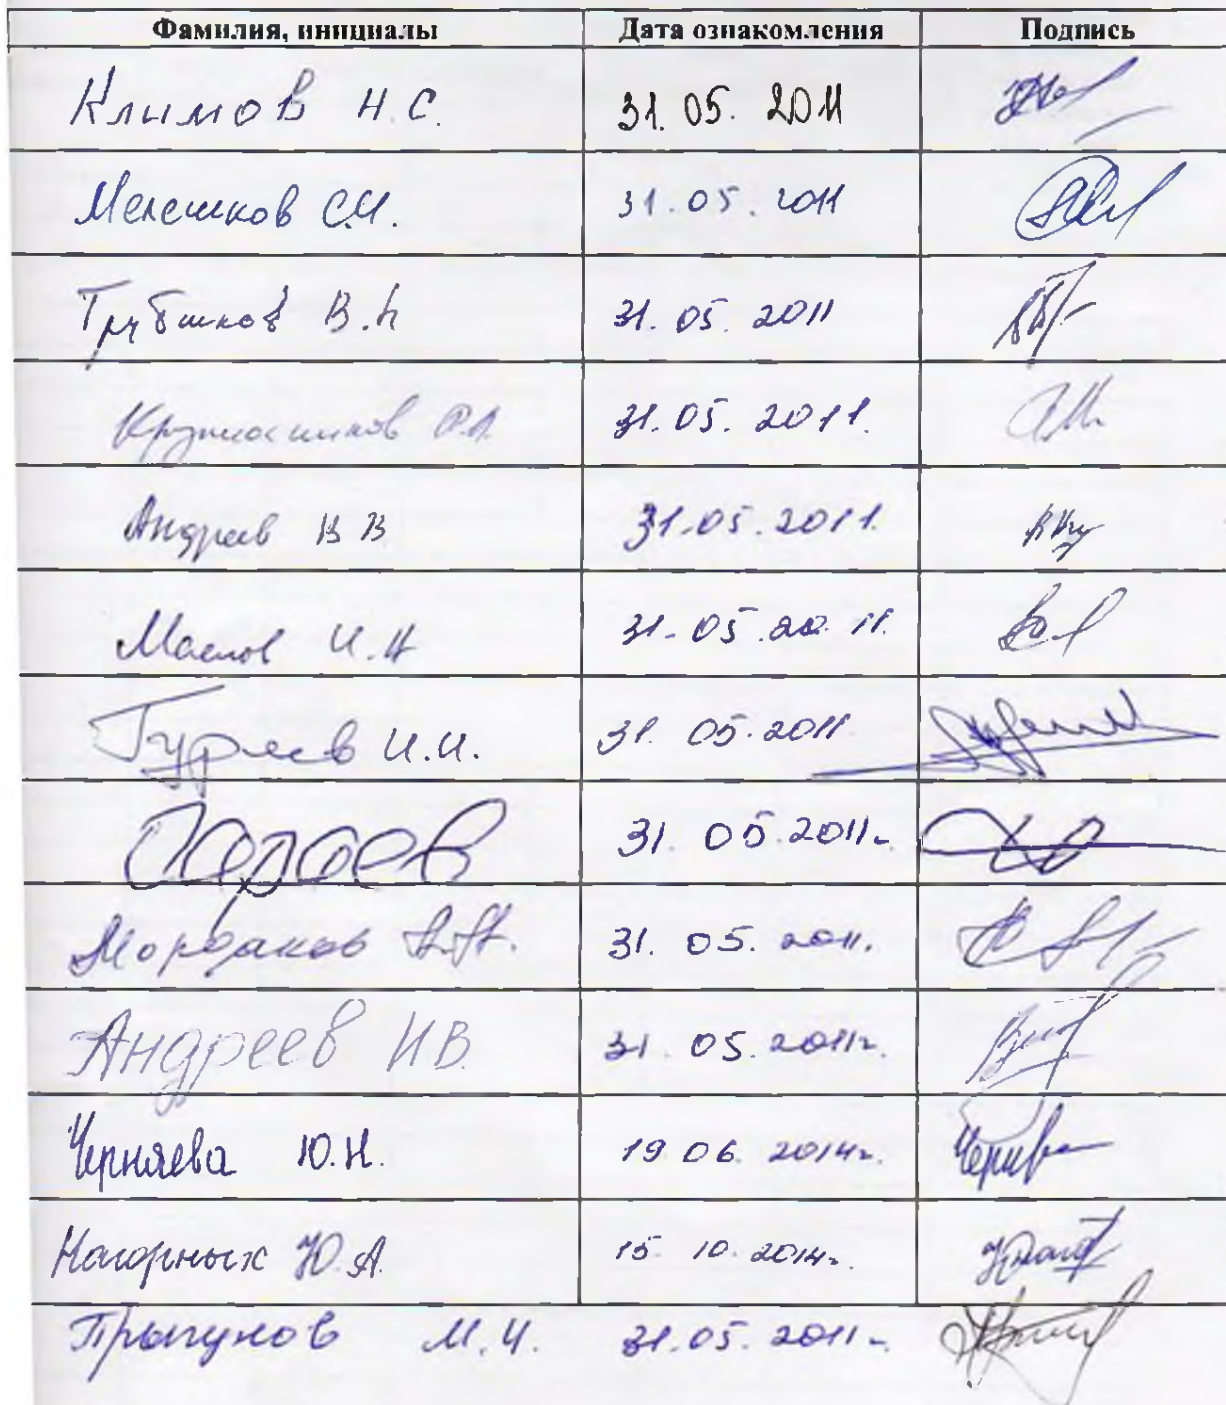 Фамилия, инициалы Дата ознакомления Подпись
Климов Н.С. 31.05.2011
Мелешков С.И. 31.05.2011
Трубников В.А 31.05.2011
31.05.2011.
Андреев В В 31.05.2011.
Маслов И.Н 31.05.2011.
Гуреев И.И. 31.05.2011
31.05.2011г
Мордаков А.Н. 31.05.2011.
Андреев И В. 31.05.2011г.
Черняева Ю.Н. 19 06. 2014г.
Нагорных Ю.А. 15 10. 2014г.
Прыгунов М.И. 31.05.2011г